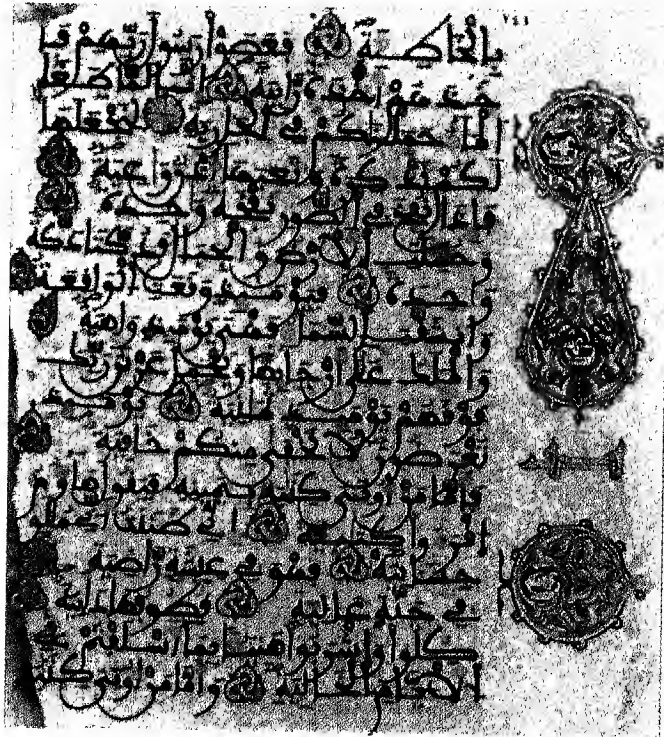 ٧٤١
بالخاطية فعصوا رسول ربهم فأ
خذهم أخذة رابية إنا لما طغا
الما حملنكم في الجارية لنجعلها
لكم تذكرة وتعيها أذن واعية
فإذا نفخ في الصور نفخة واحدة
وحملت الأرض والجبال فدكتا دكة
واحدة فيومئذ وقعت الواقعة
وانشقت السما فهي يومئذ واهية
والملك على أرجائها ويحمل عرش ربك
فوقهم يومئذ ثمنية يومئذ
تعرضون لا تخفى منكم خافية
فأما من أوتي كتبه بيمينه فيقول هاؤم
اقرءوا كتبيه إني ظننت أني ملق
حسابيه فهو في عيشة راضية
في جنة عالية قطوفها دانية
كلوا واشربوا هنيئا بما أسلفتم في
الأيام الخالية وأما من أوتي كتبه